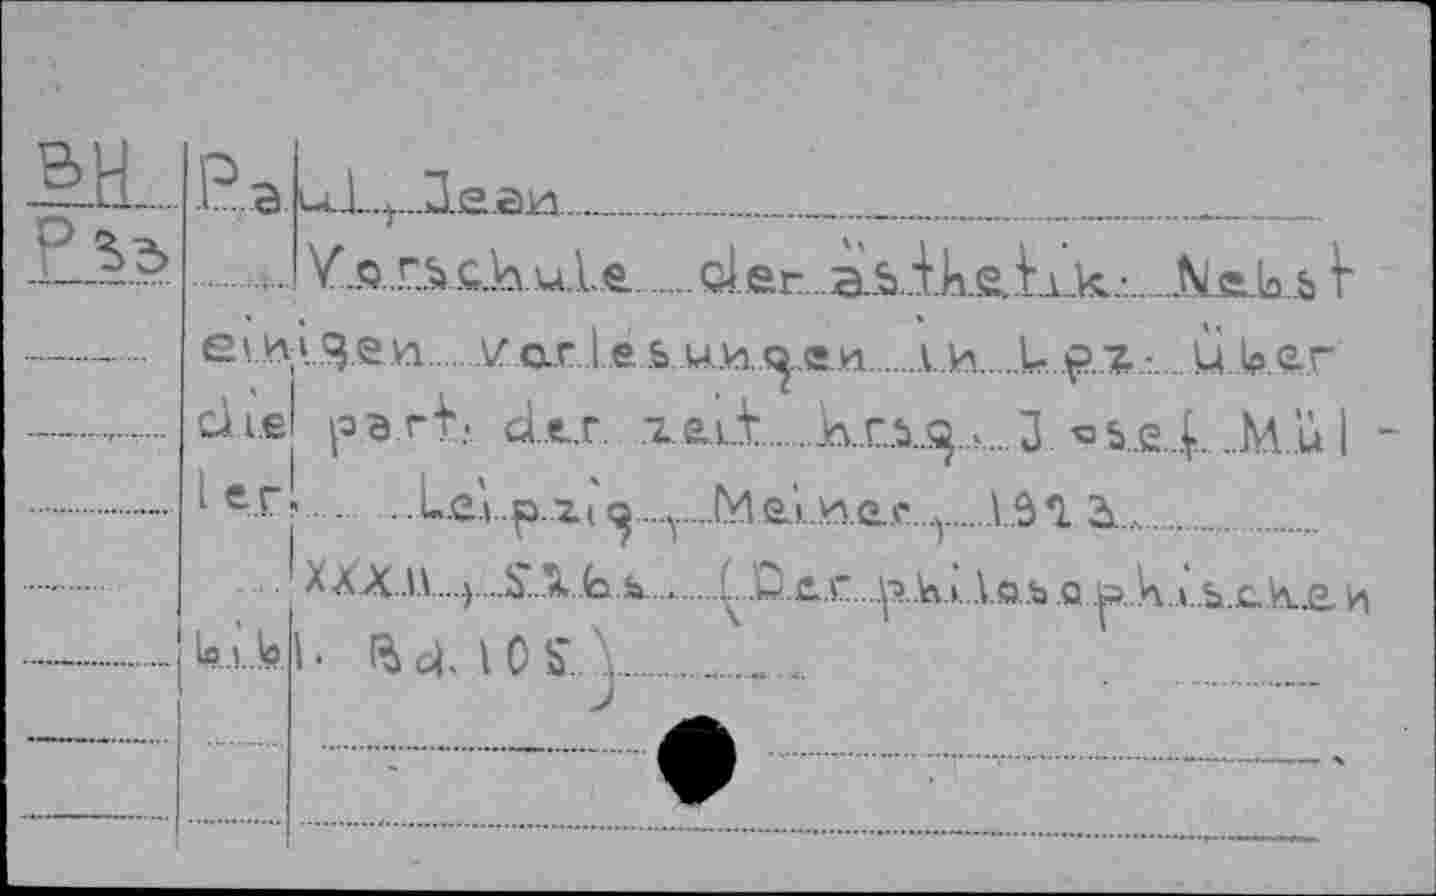 BH Paul, Jean
P33 Vorschule der ästhetik. Nebst
einigen vorlesungen in Lpz. über
die part. der zeit hrsg. Josef Mül-
ler. Leipzig, Meiner,
XXXII, s. (Der philosophischen
bibl. Bd. 105)